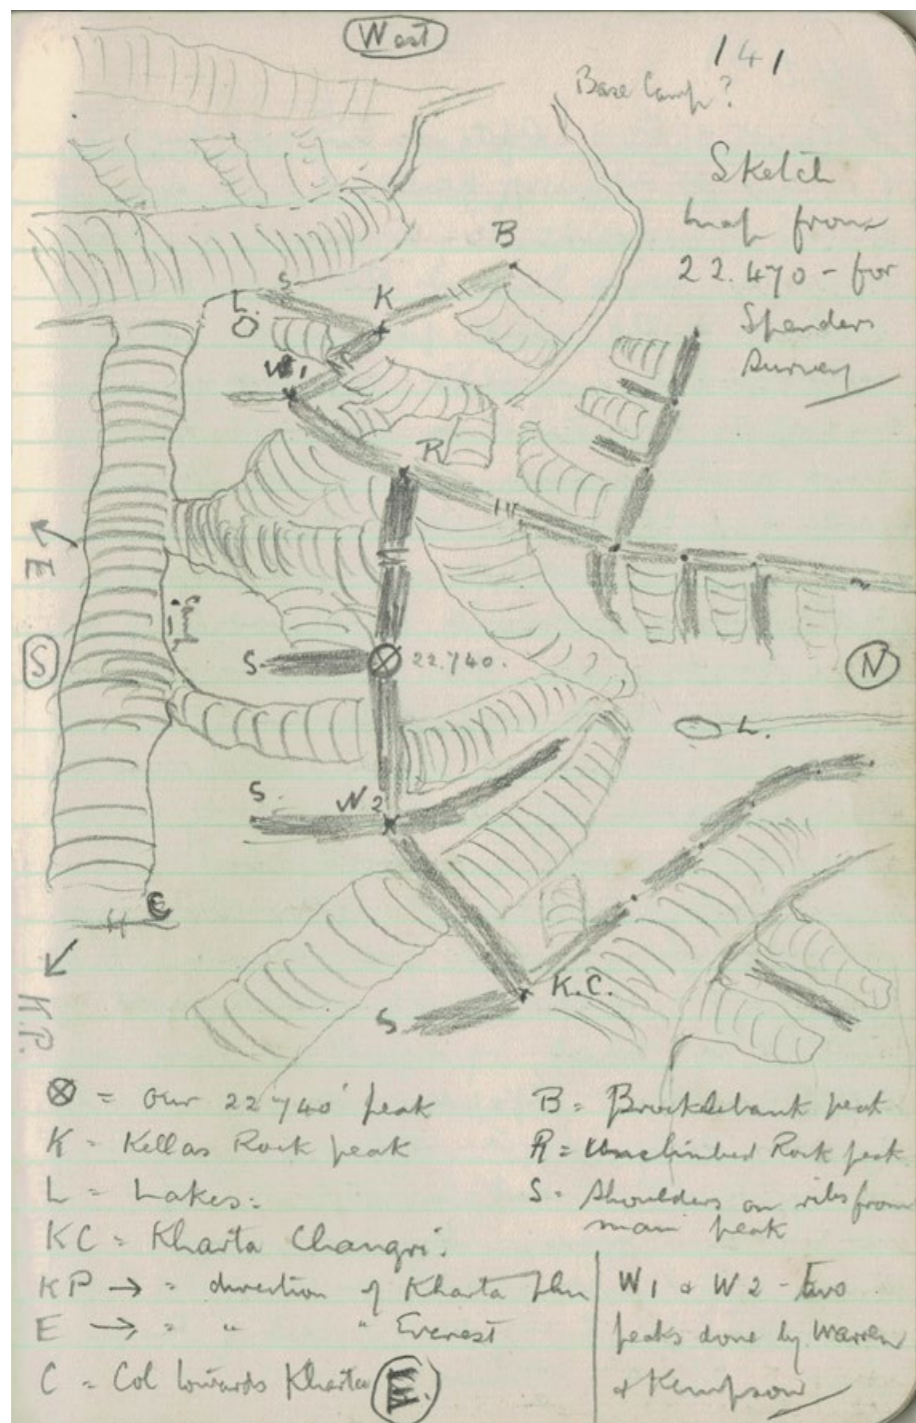 West
141
Base Camp?
Sketch
map from
22.470 - for
Spenders
Survey
B
L.
S
K
W1
R
E
S
S
22.740.
N
L.
S.
W2
C
K.C.
S
K.P.
⊗ = our 22740' peak
K = Kellas Rock peak
L = Lakes.
KC = Kharta Changri.
KP → = direction of Kharta Phu
E → = " " Everest
C = Col towards Kharta
III.
B = Brocklebank peak
R = Unclimbed Rock peak
S = Shoulders on ribs from
main peak
W1 & W2 - two
peaks done by Warren
& Kempson